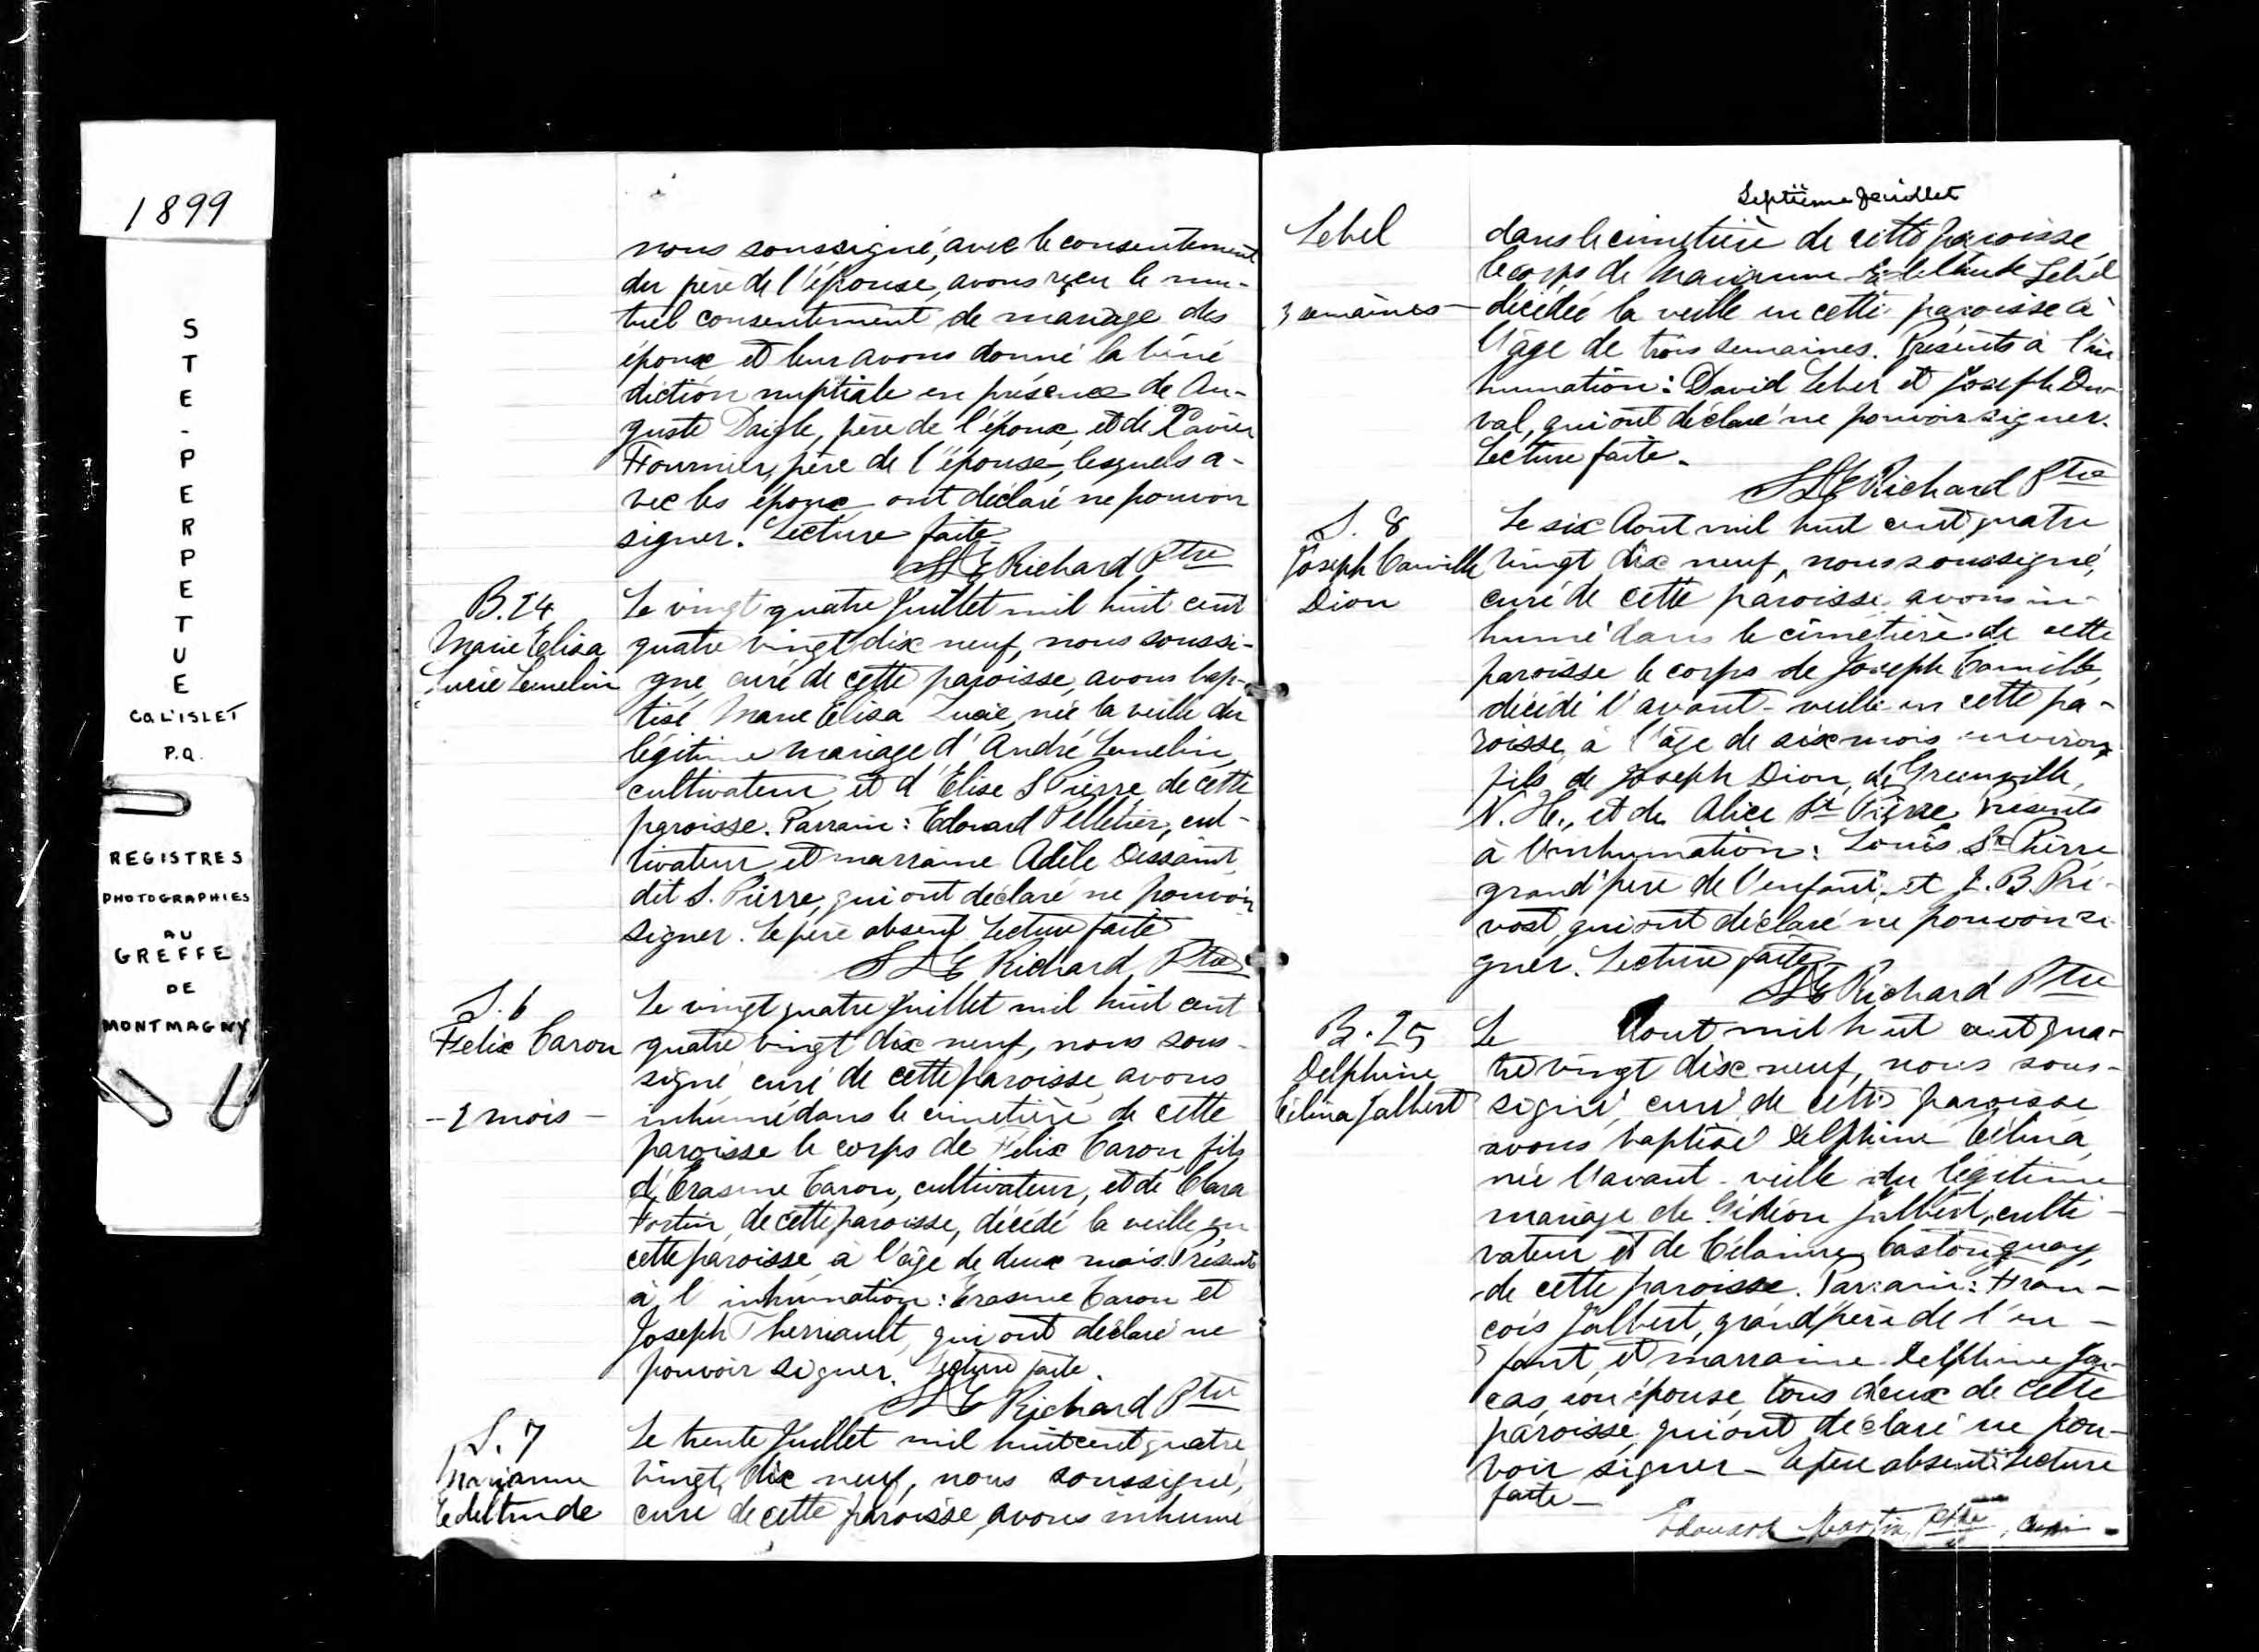 1899
STE-PERPETUE
CO. L'ISLET
P.Q.
REGISTRES
PHOTOGRAPHIES
AU
GREFFE
DE
MONTMAGNY
nous soussigné, avec le consentement
du père de l'épouse, avons reçu le mu-
tuel consentement de mariage des
époux et leur avons donné la béné
diction nuptiale en présence de Au-
guste Daigle, père de l'époux, et de Xavier
Fournier, père de l'épouse, lesquels a-
vec les époux ont déclaré ne pouvoir
signer. Lecture faite.
Richard Ptre
B. 24
Marie Elisa
Lucie Lemelin
Le vingt quatre Juillet mil huit cent
quatre vingt dix neuf, nous soussi-
gné, curé de cette paroisse, avons bap-
tisé Marie Elisa Lucie, née la veille du
légitime mariage d'André Lemelin,
cultivateur, et d'Elise S Pierre, de cette
paroisse. Parrain: Edouard Pelletier, cul-
tivateur, et marraine Adèle Dessaint
dit S. Pierre, qui ont déclaré ne pouvoir
signer. Le père absent. Lecture faite
Richard, Ptre
S. 6
Felix Caron
- 2 mois -
Le vingt quatre Juillet mil huit cent
quatre vingt dix neuf, nous sous-
signé, curé de cette paroisse, avons
inhumé dans le cimetière de cette
paroisse le corps de Felix Caron, fils
d'Erasme Caron, cultivateur, et de Clara
Fortin, de cette paroisse, décédé la veille en
cette paroisse, à l'âge de deux mois. Présents
à l'inhumation: Erasme Caron et
Joseph Therriault, qui ont déclaré ne
pouvoir signer. Lecture faite.
Richard Ptre
S. 7
Marianne
Edeltrude
Le trente Juillet mil huit cent quatre
vingt dix neuf, nous soussigné,
curé de cette paroisse, avons inhumé
Septième feuillet
Lebel
3 semaines -
dans le cimetière de cette paroisse
le corps de Marianne Edeltrude Lebel
décédée la veille en cette paroisse à
l'âge de trois semaines. Présents à l'in
humation: David Lebel et Joseph Du-
val, qui ont déclaré ne pouvoir signer.
Lecture faite.
Richard Ptre
S. 8
Joseph Camille
Dion
Le six Aout mil huit cent quatre
vingt dix neuf, nous soussigné,
curé de cette paroisse, avons in-
humé dans le cimetière de cette
paroisse le corps de Joseph Camille,
décédé l'avant-veille en cette pa-
roisse, à l'âge de six mois environ,
fils de Joseph Dion, de Greenville,
N. H., et de Alice St Pierre. Présents
à l'inhumation: Louis St Pierre
grand'père de l'enfant, et J. B. Pré-
vost, qui ont déclaré ne pouvoir si-
gner. Lecture faite
Richard Ptre
B. 25
Delphine
Célina Jalbert
Le Aout mil huit cent qua-
tre vingt dix neuf, nous sous-
signé, curé de cette paroisse
avons baptisé Delphine Célina,
née l'avant-veille du légitime
mariage de Gédéon Jalbert, culti-
vateur et de Célanire Castonguay,
de cette paroisse. Parrain: Fran-
çois Jalbert, grand'père de l'en-
fant, et marraine Delphine
son épouse, tous deux de cette
paroisse, qui ont déclaré ne pou-
voir signer - Le père absent. Lecture
faite -
Edouard Martin, Ptre, curé -